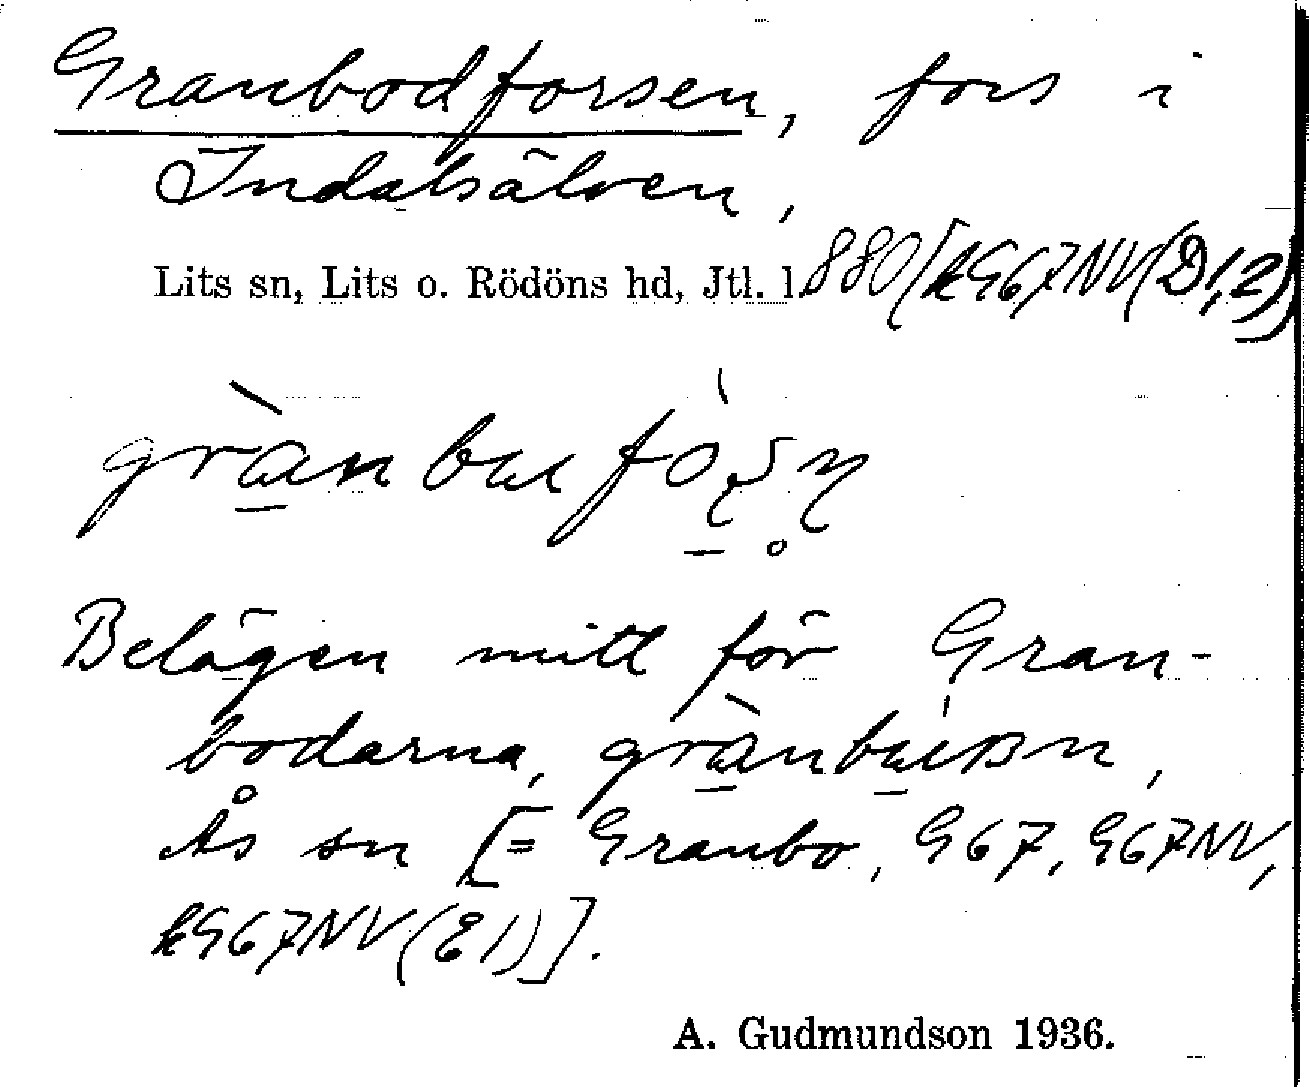 Granbodforsen, fors i
Indalsälven,
Lits sn, Lits o. Rödöns hd, Jtl. l. 880 [kG67NV(D1,2)]
grànbufòʂn̥
Belägen mitt för Gran-
bodarna, grànbúɪsn,
Ås sn [= Granbo, G67, G67NV,
kG67NV(E1)].
A. Gudmundson 1936.